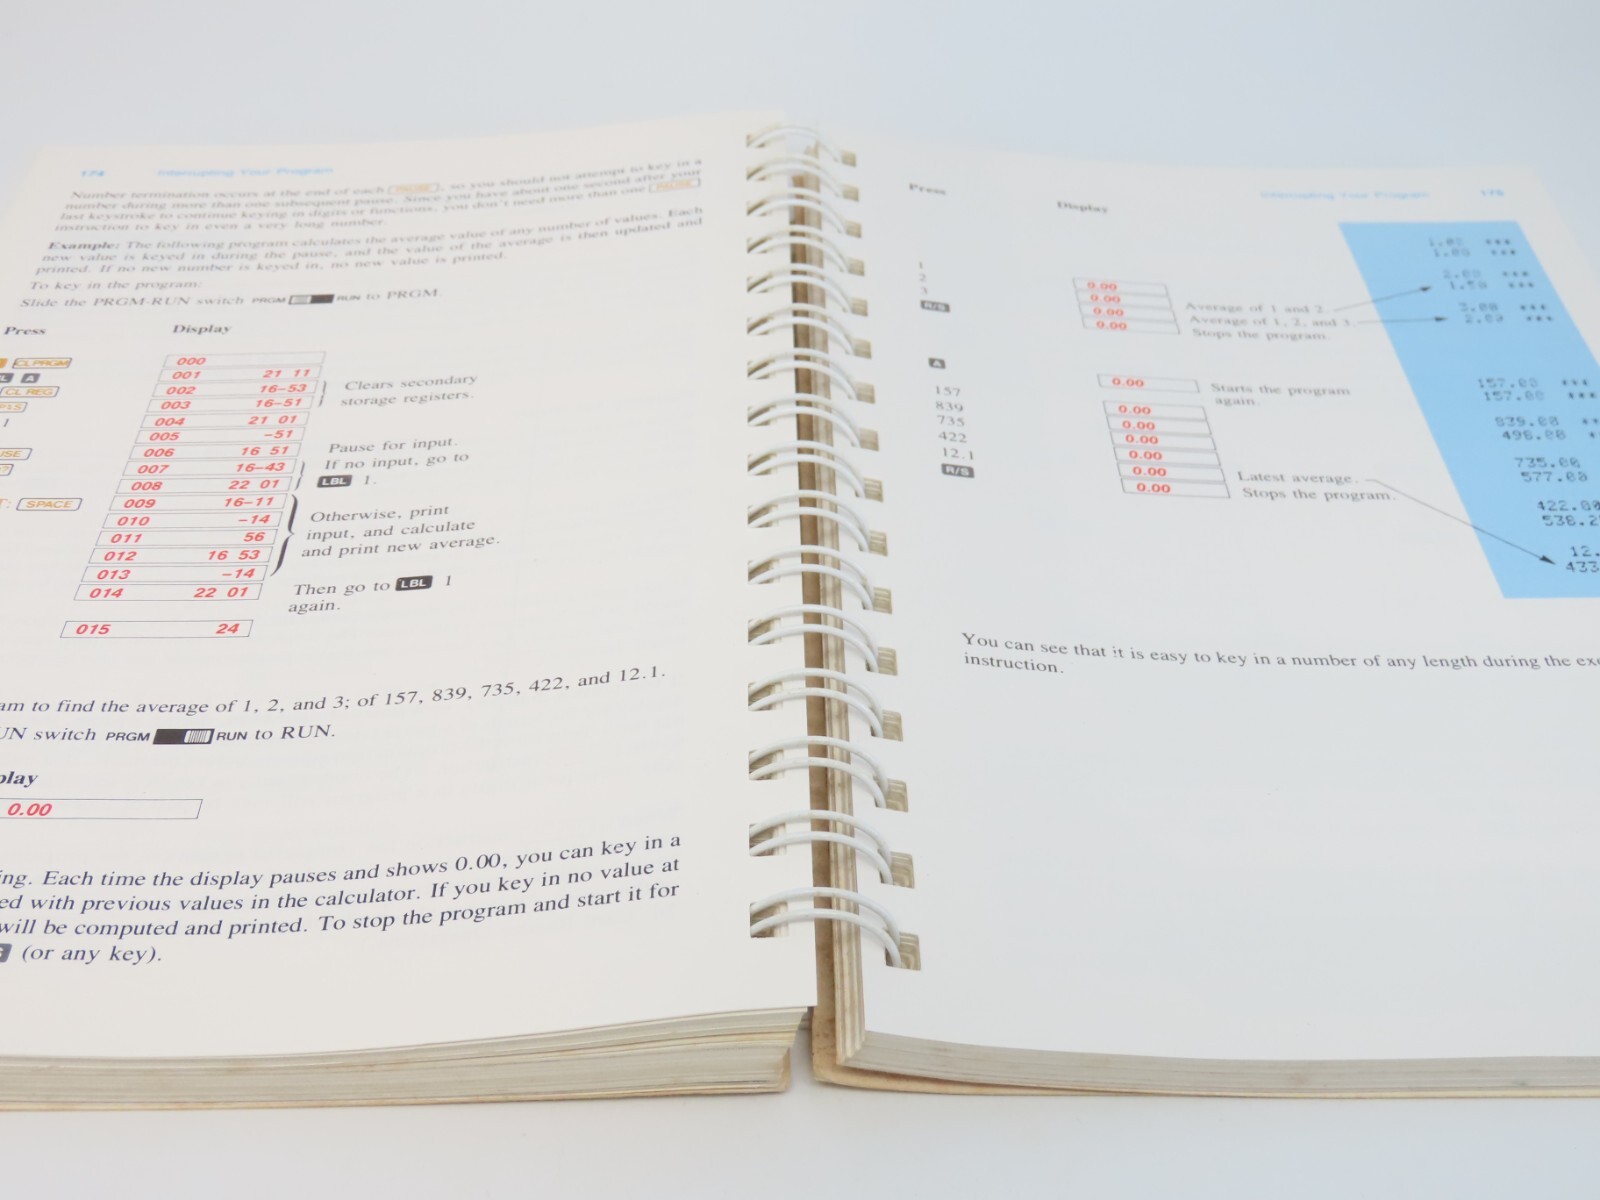 174 Interrupting Your Program
Number termination occurs at the end of each PAUSE, so you should not attempt to key in a
number during more than one subsequent pause. Since you have about one second after your
last keystroke to continue keying in digits or functions, you don't need more than one PAUSE
instruction to key in even a very long number.
Example: The following program calculates the average value of any number of values. Each
new value is keyed in during the pause, and the value of the average is then updated and
printed. If no new number is keyed in, no new value is printed.
To key in the program:
Slide the PRGM-RUN switch PRGM RUN to PRGM.
Press Display
CL PRGM 000
A 001 21 11
CL REG 002 16-53 Clears secondary
003 16-51 storage registers.
1 004 21 01
005 -51
006 16 51 Pause for input.
007 16-43 If no input, go to
008 22 01 LBL 1.
SPACE 009 16-11
010 -14 Otherwise, print
011 56 input, and calculate
012 16 53 and print new average.
013 -14
014 22 01 Then go to LBL 1
again.
015 24
am to find the average of 1, 2, and 3; of 157, 839, 735, 422, and 12.1.
UN switch PRGM RUN to RUN.
play
0.00
ing. Each time the display pauses and shows 0.00, you can key in a
ed with previous values in the calculator. If you key in no value at
will be computed and printed. To stop the program and start it for
(or any key).
Interrupting Your Program 175
Press Display
1.00 ***
1.00 ***
1 0.00
2 0.00 Average of 1 and 2. 2.00 ***
1.50 ***
3 0.00 Average of 1, 2, and 3. 3.00 ***
2.00 ***
R/S 0.00 Stops the program.
A 0.00 Starts the program
again.
157 0.00 157.00 ***
157.00 ***
839 0.00 839.00
498.00
735 0.00 735.00
577.00
422 0.00 422.00
538.2
12.1 0.00 Latest average. 12.
433
R/S 0.00 Stops the program.
You can see that it is easy to key in a number of any length during the exe
instruction.